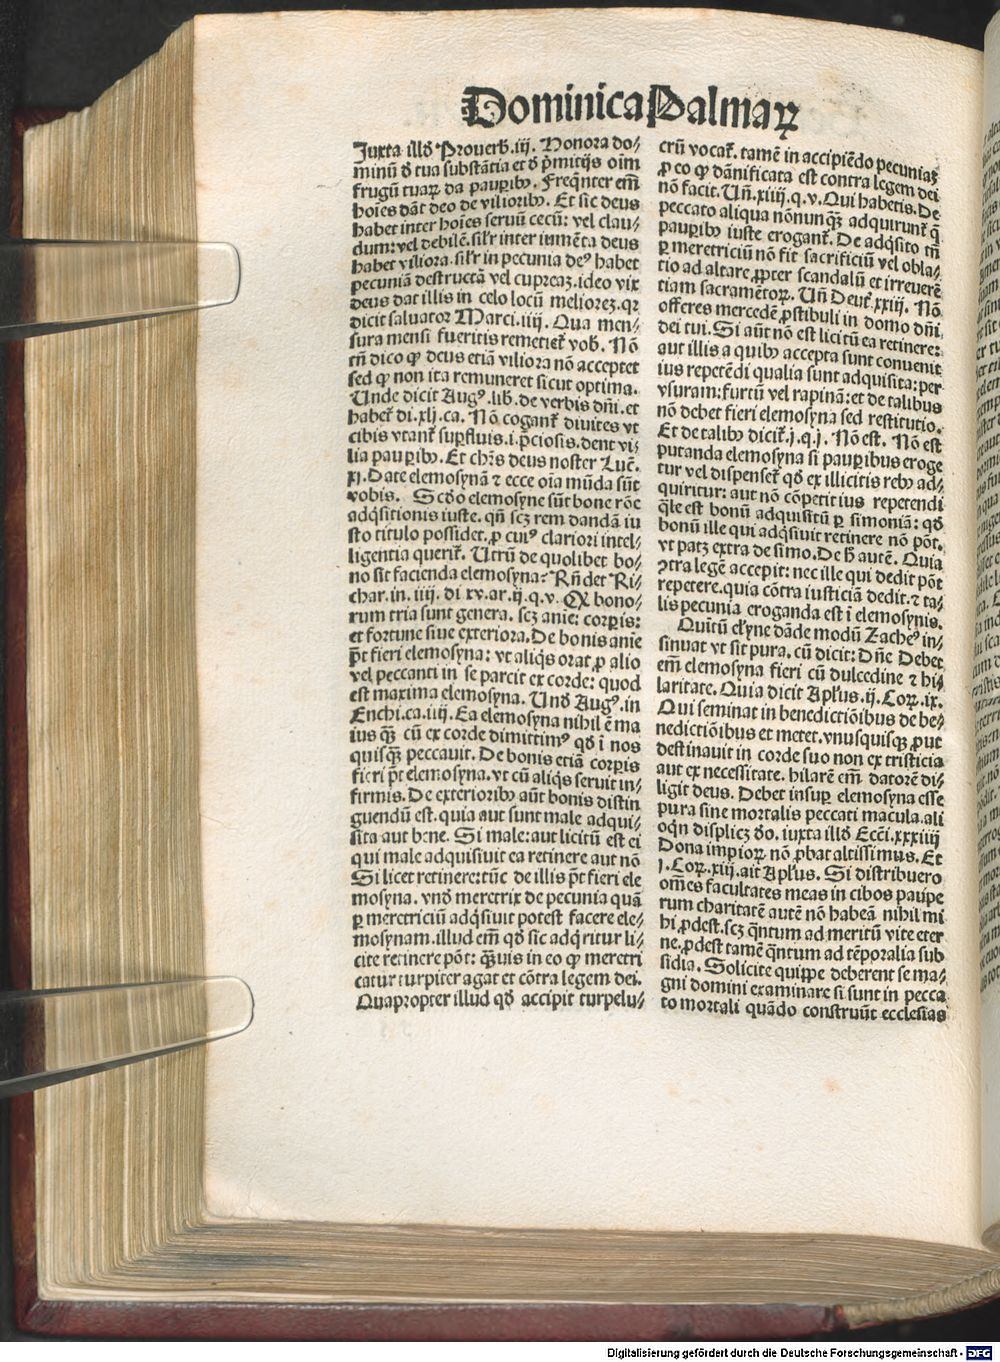 Dominica Palmaꝝ
Iuxta illđ Prouerƀ.iij. Honora do⸗
minū đ tua substātia et đ p̄mitijs oīm
frugū tuaꝝ da pauꝑibꝰ. Freq̄nter em̄
hoīes dāt deo de vilioribꝰ. Et sic deus
habet inter hoīes seruū cecū: vel clau⸗
dum: vel debilē. sil'r inter iumēta deus
habet viliora. sil'r in pecunia deꝰ habet
pecuniā destructā vel cupreaꝫ. ideo vix
deus dat illis in celo locū melioreꝫ. qꝛ
dicit saluator Marci.iiij. Qua men⸗
sura mensi fueritis remetiet̄ vob̄. Nō
tn̄ dico ꝙ deus etiā viliora nō acceptet
sed ꝙ non ita remuneret sicut optima.
Unde dicit Augꝰ. lib. de verbis dn̄i. et
habet̄ di.xlj.ca. Nō cogant̄ diuites vt
cibis vtant̄ suꝑfluis. i. p̄ciosis. dent vi⸗
lia pauꝑibꝰ. Et chr̄s deus noster Luč.
xj. Date elemosynā ⁊ ecce oīa mūda sūt
vobis. Scđo elemosyne sūt bone rōe
adq̇sitionis iuste. qn̄ scꝫ rem dandā iu
sto titulo possidet. ꝓ cuiꝰ clariori intel⸗
ligentia querit̄. Utrū de quolibet bo⸗
no sit facienda elemosyna? Rn̄det Ri⸗
char. in.iiij. di xv. ar.ij.q.v. Qꝙ bono⸗
rum tria sunt genera. scꝫ anīe: corꝑis:
et fortune siue exteriora. De bonis anīe
p̄t fieri elemosyna: vt aliq̇s orat ꝓ alio
vel peccanti in se parcit ex corde: quod
est maxima elemosyna. Unđ Augꝰ. in
Enchi.ca.iiij. Ea elemosyna nihil ē ma
ius qꝫ cū ex corde dimittimꝰ qđ ī nos
quisqꝫ peccauit. De bonis etiā corꝑis
fieri p̄t elemosyna. vt cū aliq̇s seruit in⸗
firmis. De exterioribꝰ aūt bonis distin
guendū est. quia aut sunt male adqui⸗
sita aut bene. Si male: aut licitū est ei
qui male adquisiuit ea retinere aut nō
Si licet retinere: tūc de illis p̄t fieri ele
mosyna. vnđ meretrix de pecunia quā
ꝑ meretriciū adq̇siuit potest facere ele⸗
mosynam. illud em̄ qđ sic adq̇ritur li⸗
cite retinere pōt: qꝫuis in eo ꝙ meretri
catur turpiter agat et cōtra legem dei.
Quapropter illud qđ accipit turpelu⸗
crū vocat̄. tamē in accipiēdo pecuniaꝫ
ꝓ eo ꝙ dānificata est contra legem dei
nō facit. Un̄.xiiij.q.v. Qui habetis. De
peccato aliqua nōnunqꝫ adquirunt̄ q̄
pauꝑibꝰ iuste erogant̄. De adq̇sito tn̄
ꝑ meretriciū nō fit sacrificiū vel obla⸗
tio ad altare ꝓpter scandalū et irreuerē
tiam sacramētoꝝ. Un̄ Deut̄.xxiij. Nō
offeres mercedē ꝓstibuli in domo dn̄i.
dei tui. Si aūt nō est licitū ea retinere:
aut illis a quibꝰ accepta sunt conuenit
ius repetēdi qualia sunt adquisita: per
vsuram: furtū vel rapinā: et de talibus
nō debet fieri elemosyna sed restitutio.
Et de talibꝰ dicit̄.j.q.j. Nō est. Nō est
putanda elemosyna si pauꝑibus eroge
tur vel dispenset̄ qđ ex illicitis rebꝰ ad⸗
quiritur: aut nō cōpetit ius repetendi
q̄le est bonū adquisitū ꝑ simoniā: qđ
bonū ille qui adq̇siuit retinere nō pōt.
vt patꝫ extra de simo. De h̄ autē. Quia
ꝯtra legē accepit: nec ille qui dedit pōt
repetere. quia cōtra iusticiā dedit. ⁊ ta⸗
lis pecunia eroganda est ī elemosynis.
Quītū el'yne dāde modū Zacheꝰ in⸗
sinuat vt sit pura. cū dicit: Dn̄e Debet
em̄ elemosyna fieri cū dulcedine ⁊ hi⸗
laritate. Quia dicit Apl'us.ij. Coꝝ.ix.
Qui seminat in benedictiōibus de be⸗
nedictiōibus et metet. vnusquisqꝫ ꝓut
destinauit in corde suo non ex tristicia
aut ex necessitate. hilarē em̄ datorē di⸗
ligit deus. Debet insuꝑ elemosyna esse
pura sine mortalis peccati macula. ali
oqn̄ displicꝫ đo. iuxta illđ Ecc̄i.xxxiiij
Dona impioꝝ nō ꝓbat altissimus. Et
j. Coꝝ.xiij. ait Apl'us. Si distribuero
om̄es facultates meas in cibos paupe
rum charitatē autē nō habeā nihil mi
hi ꝓdest. scꝫ q̄ntum ad meritū vite eter
ne. ꝓdest tamē q̄ntum ad tēporalia sub
sidia. Solicite quippe deberent se ma⸗
gni domini examinare si sunt in pecca
to mortali quādo construūt ecclesias
Digitalisierung gefördert durch die Deutsche Forschungsgemeinschaft - DFG